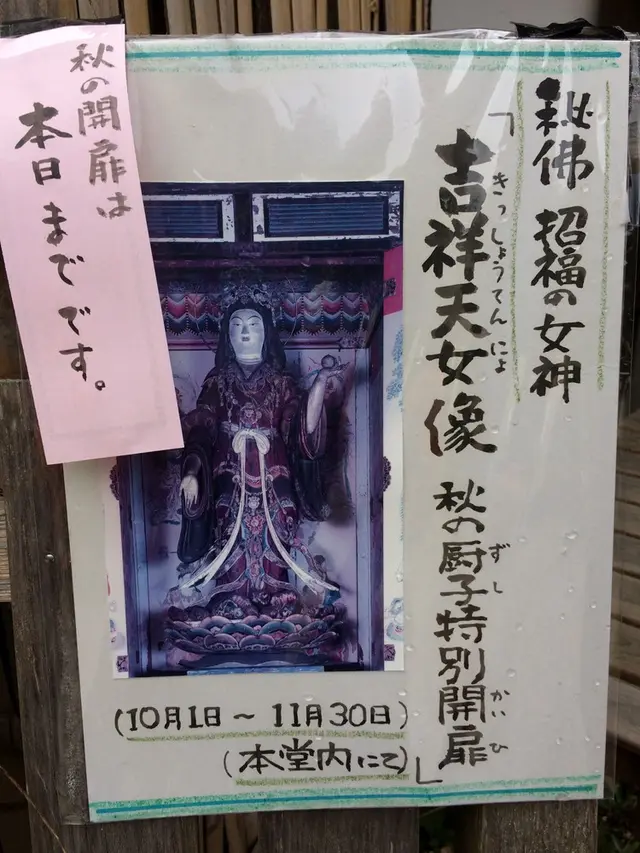 秘佛 招福の女神
「吉祥天女像 秋の厨子特別開扉
きっしょうてんにょ
ずし
かいひ
(10月1日～11月30日)
(本堂内にて)」
秋の開扉は
本日までです。